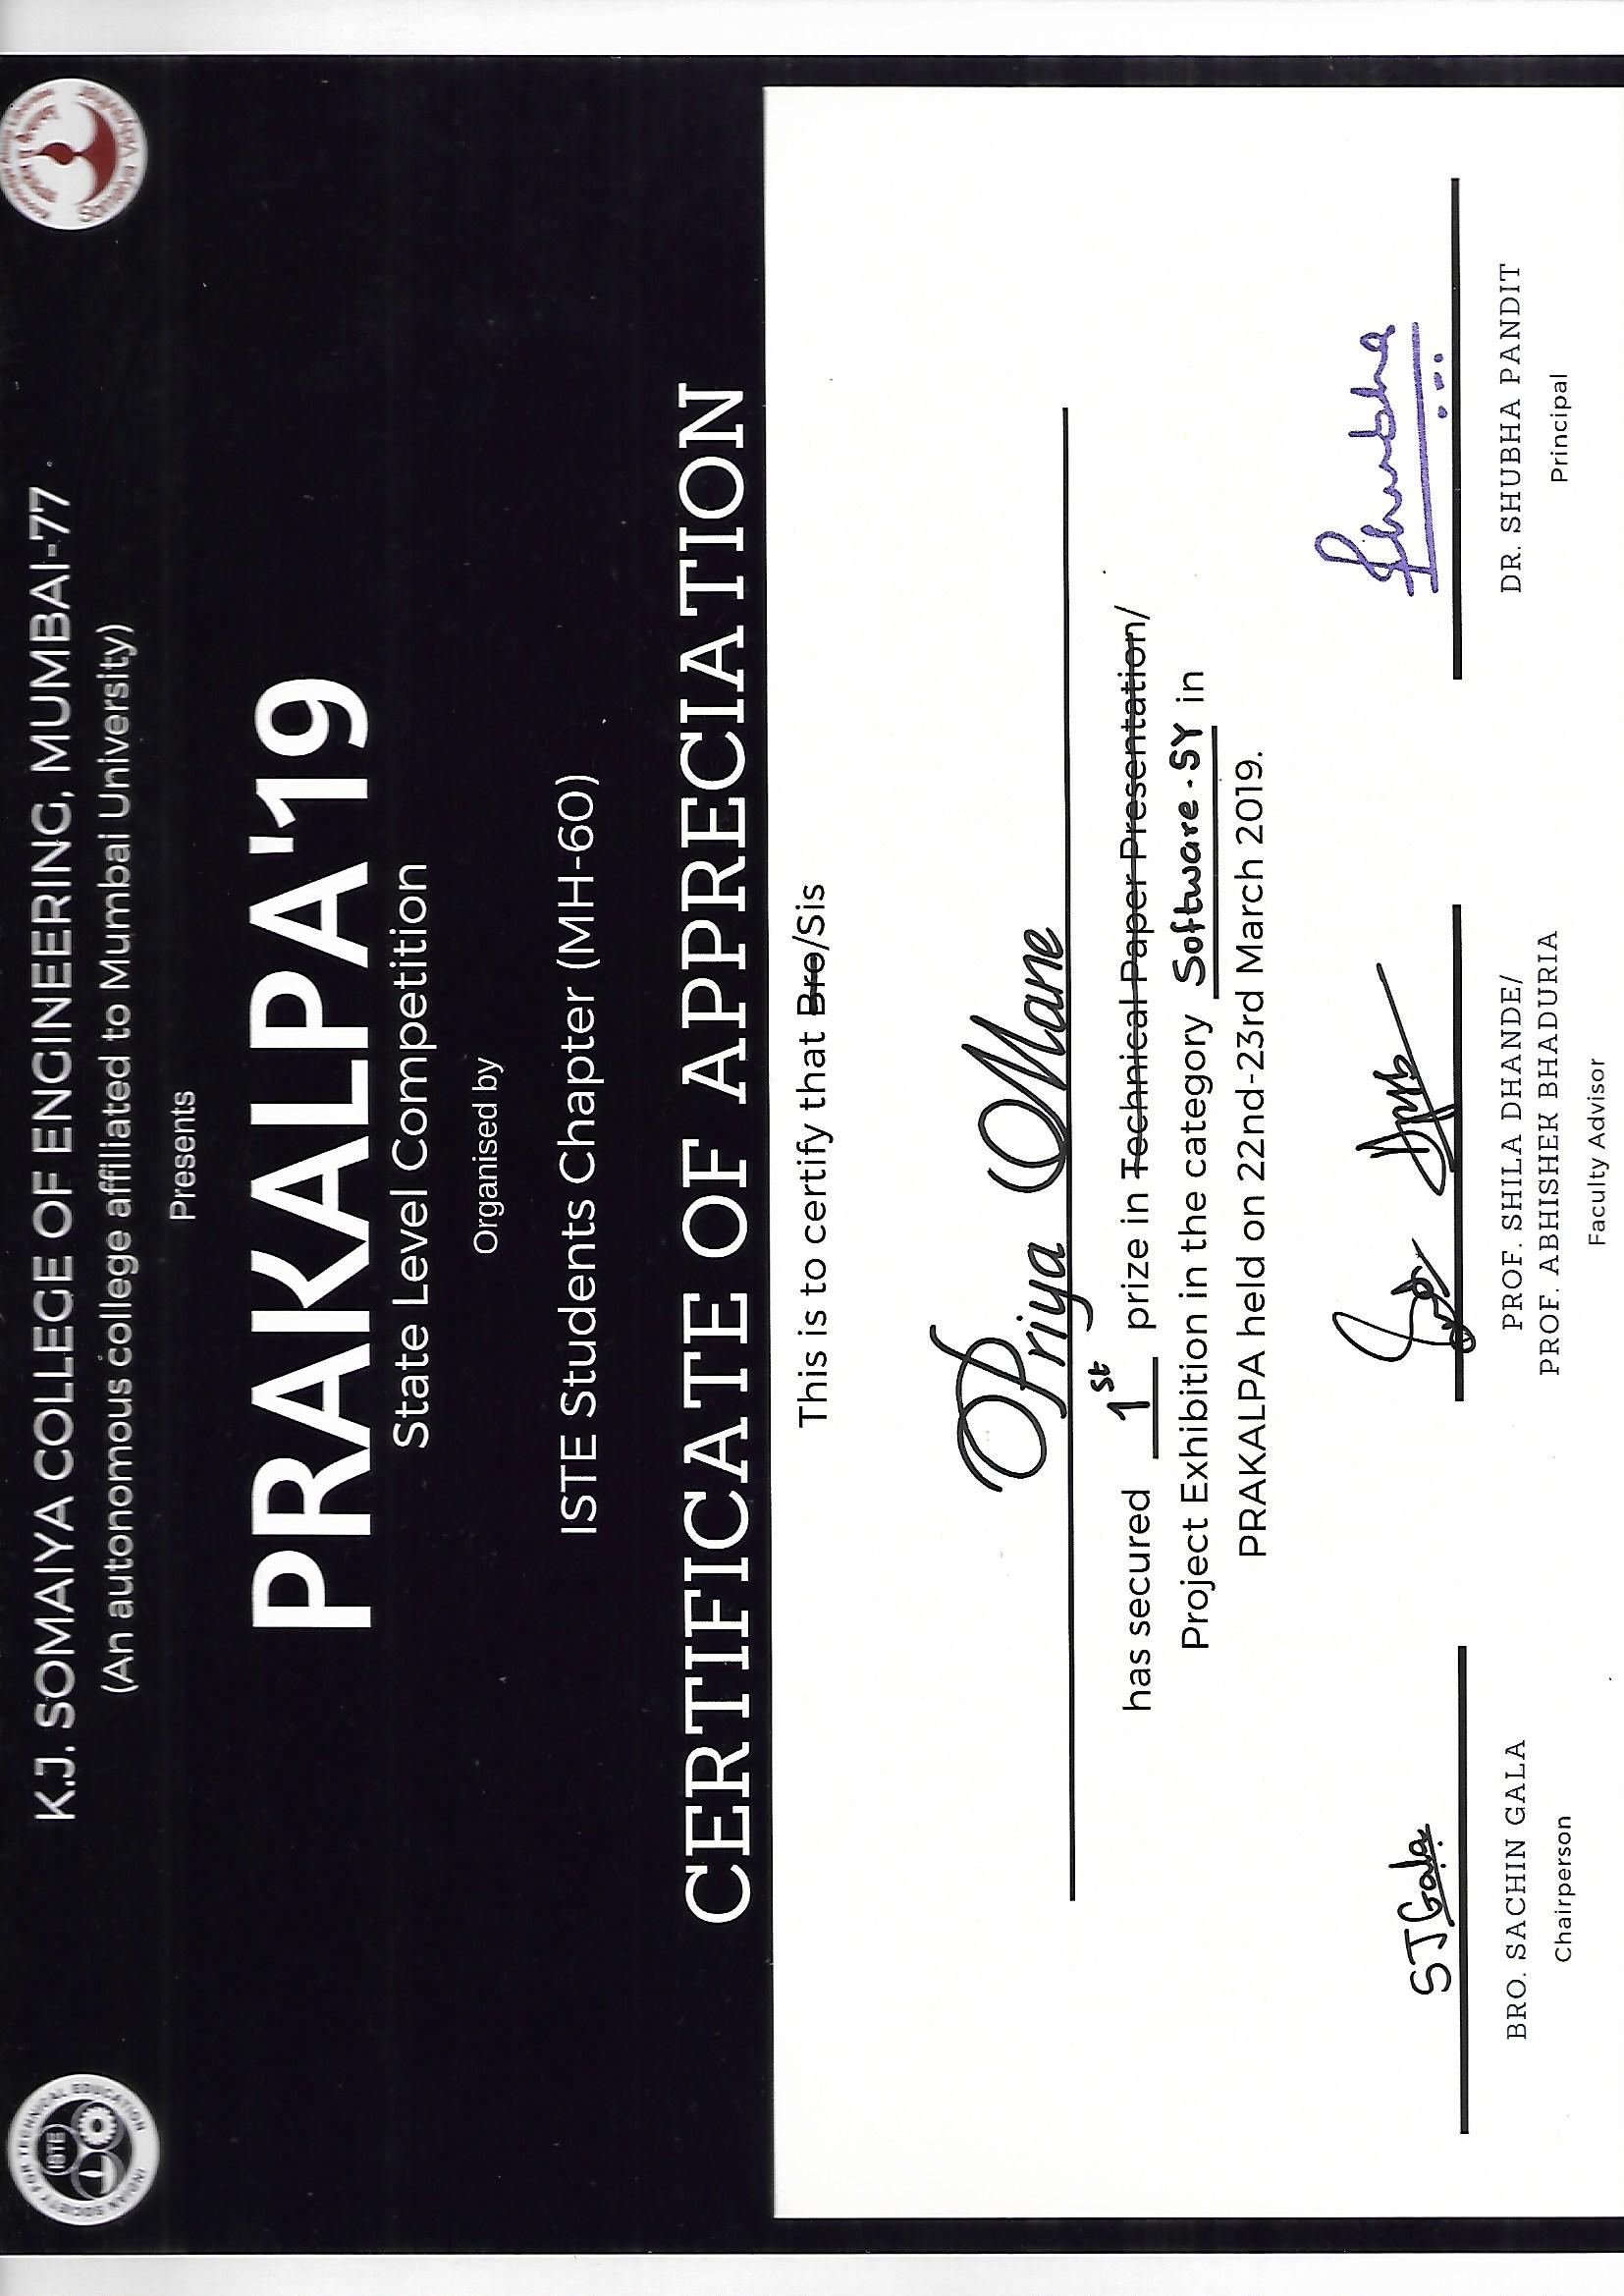 ISTE
K.J. SOMAIYA COLLEGE OF ENGINEERING, MUMBAI-77
(An autonomous college affiliated to Mumbai University)
Somaiya Vidyavihar
Presents
PRAKALPA'19
State Level Competition
Organised by
ISTE Students Chapter (MH-60)
CERTIFICATE OF APPRECIATION
This is to certify that Bro/Sis
Priya Mane
has secured 1st prize in Technical Paper Presentation/
Project Exhibition in the category Software-SY in
PRAKALPA held on 22nd-23rd March 2019.
SJGala
Shubha
BRO. SACHIN GALA
Chairperson
PROF. SHILA DHANDE/
PROF. ABHISHEK BHADURIA
Faculty Advisor
DR. SHUBHA PANDIT
Principal